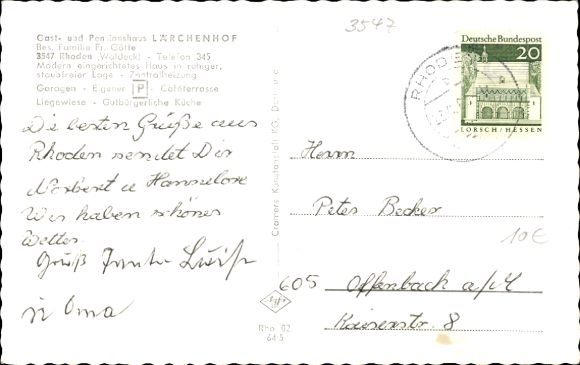 3547
Gast- und Pensionshaus LÄRCHENHOF
Bes. Familie Fr. Götte
3547 Rhoden (Waldeck) - Telefon 345
Modern eingerichtetes Haus in ruhiger,
staubfreier Lage - Zentralheizung
Garagen - Eigener P - Caféterrasse
Liegewiese - Gutbürgerliche Küche
Die besten Grüße aus
Rhoden sendet Dir
Norbert u Hannelore
Wir haben schönes
Wetter
Gruß Tante
Oma
Cramers Kunstanstalt KG, Dortmund
Agfa
Rho 02
64 5
RHODE
Deutsche Bundespost
20
LORSCH/HESSEN
Herrn
Peter Becker
10 €
605 Offenbach a/M
Kaiserstr. 8